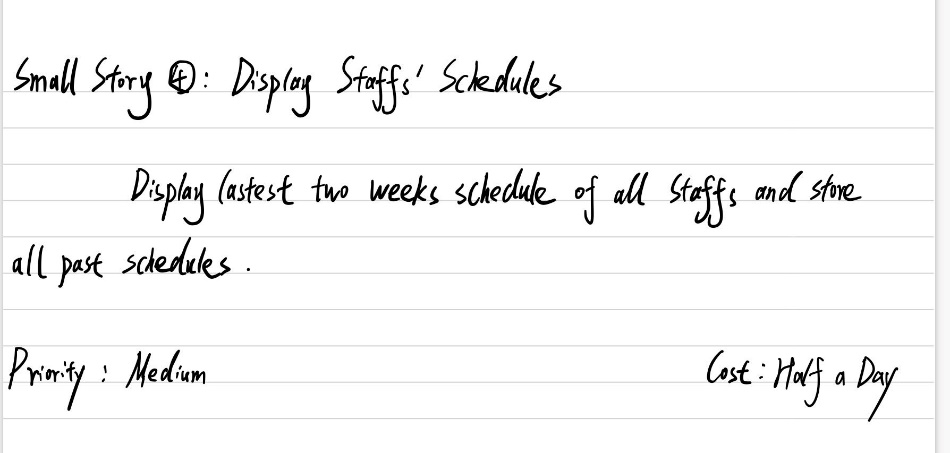 Small Story ④: Display Staffs' Schedules
Display lastest two weeks schedule of all Staffs and store
all past schedules.
Priority: Medium Cost: Half a Day